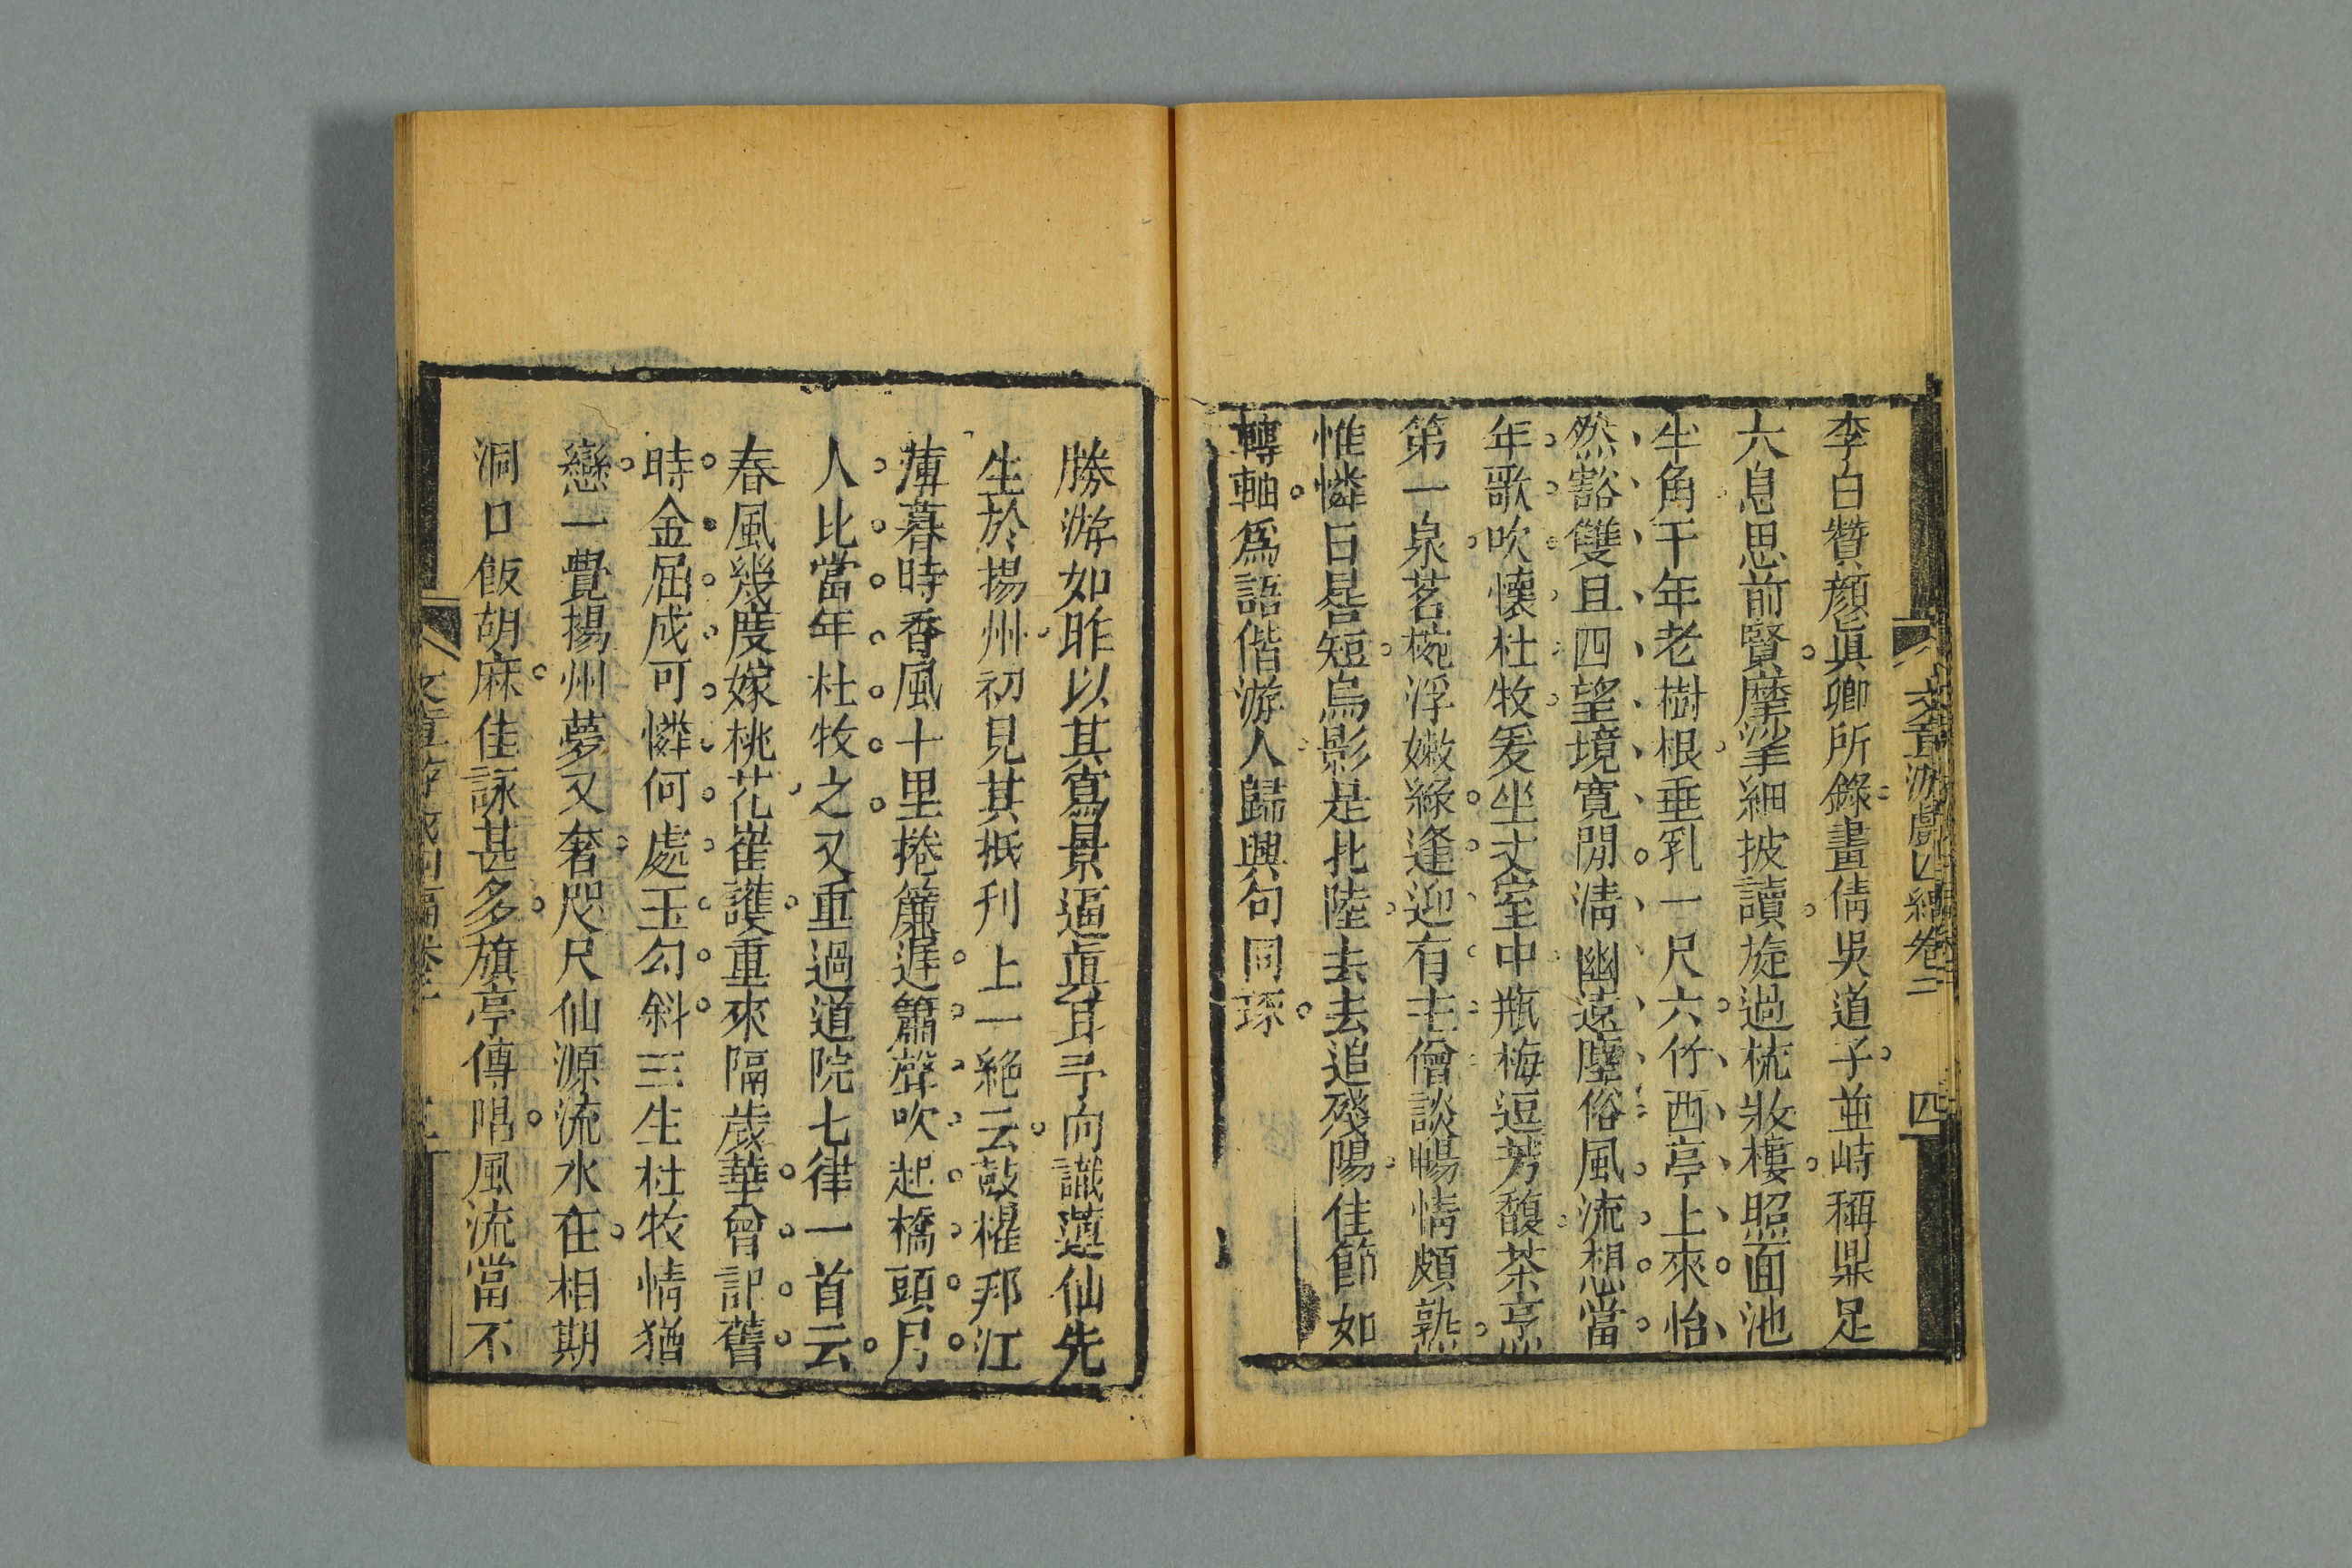 文章游戲四編卷二
四
李白贊顔眞卿所錄畫倩吳道子並峙稱鼎足
大息思前賢摩挲細披讀旋過梳妝樓照面池
半角千年老樹根垂乳一尺六竹西亭上來怡
然豁雙且四望境寛閒淸幽遠塵俗風流想當
年歌吹懷杜牧爰坐丈室中瓶梅逗芳馥茶烹
第一泉茗椀浮嫩綠逢迎有主僧談暢情頗孰
惟憐日晷短烏影是北陸去去追殘陽佳節如
轉軸爲語偕游人歸興句同琢
勝游如昨以其寫景逼眞耳予向識蓮仙先
生於揚州初見其抵刋上一絶云鼓櫂邗江
薄暮時香風十里捲簾遲簫聲吹起橋頭月
人比當年杜牧之又重過道院七律一首云
春風幾度嫁桃花崔護重來隔歲華曾記舊
時金屈成可憐何處玉勾斜三生杜牧情猶
戀一覺揚州夢又奢咫尺仙源流水在相期
洞口飯胡麻佳詠甚多旗亭傳唱風流當不